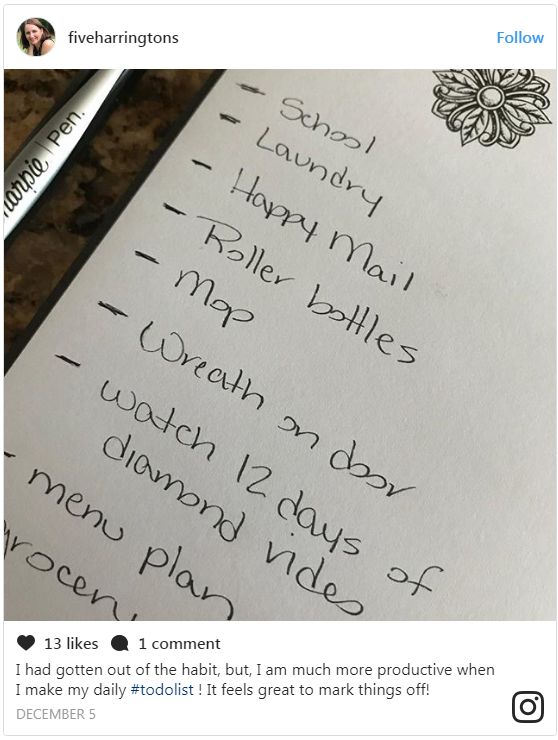 fiveharringtons
Follow
arpie | Pen.
- School
- Laundry
- Happy Mail
- Roller bottles
- Mop
- Wreath on door
- watch 12 days of
diamond video
- menu plan
rocery
13 likes 1 comment
I had gotten out of the habit, but, I am much more productive when
I make my daily #todolist ! It feels great to mark things off!
DECEMBER 5